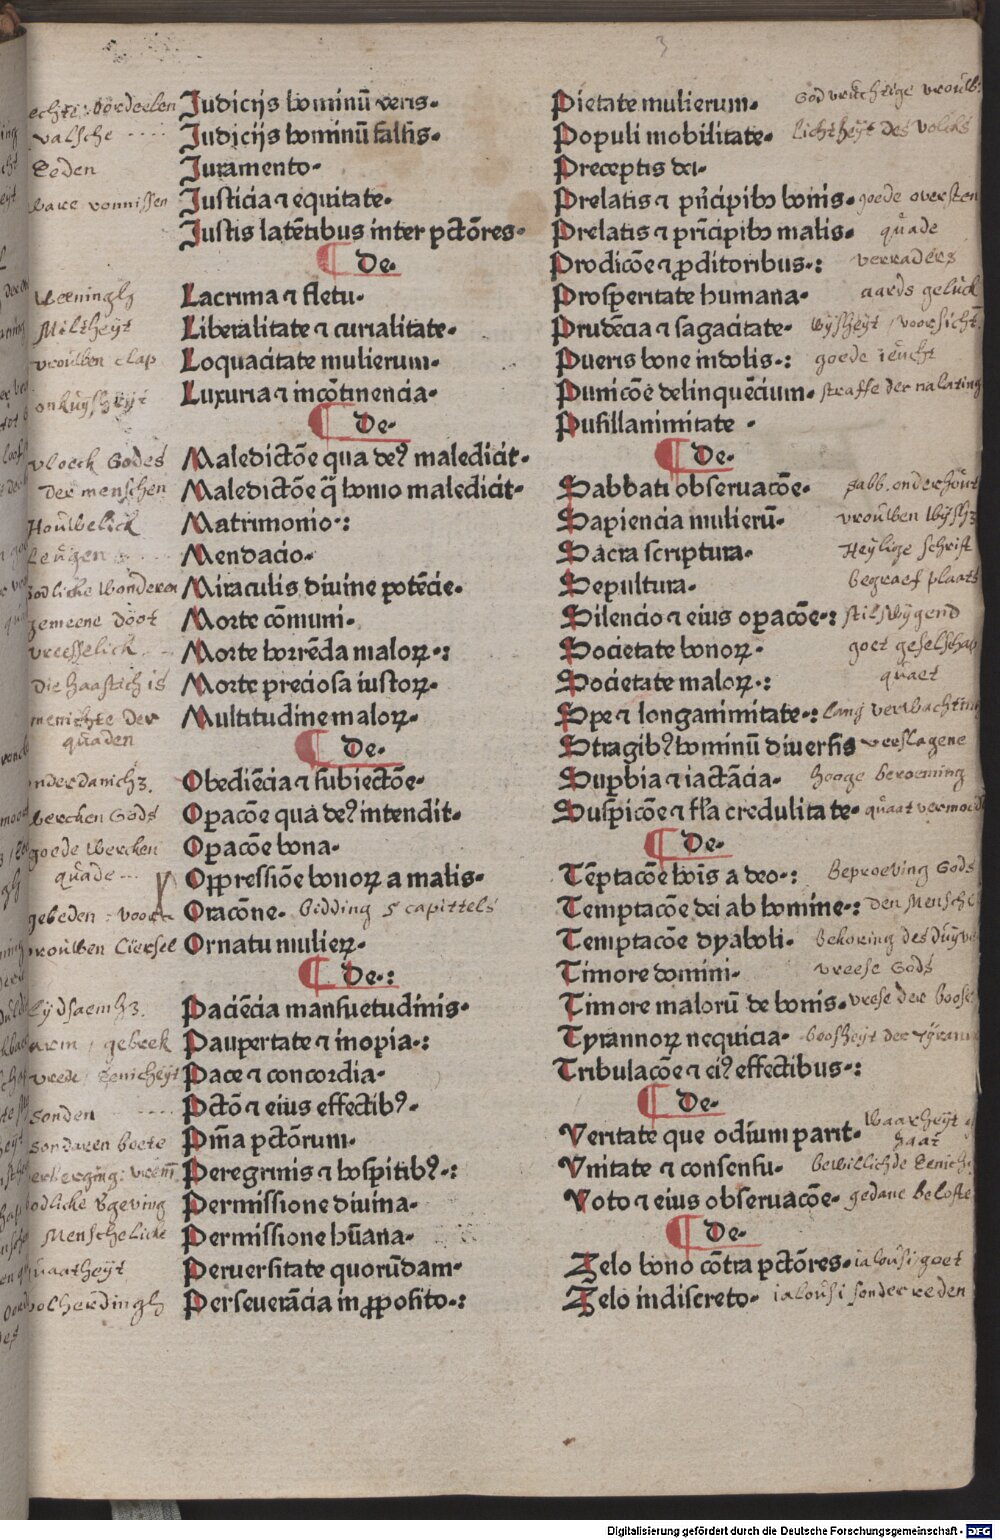 3
Judicijs hominū veris.
Judicijs hominū falsis.
Juramento.
Justicia ⁊ equitate.
Justis latētibus inter pctōres.
¶ De.
Lacrima ⁊ fletu.
Liberalitate ⁊ curialitate.
Loquacitate mulierum.
Luxuria ⁊ incōtinencia.
¶ De.
Maledictōe qua deꝰ maledicit.
Maledictōe q̄ homo maledicit.
Matrimonio.:
Mendacio.
Miraculis diuine potēcie.
Morte cōmuni.
Morte horrēda maloꝝ.:
Morte preciosa iustoꝝ.
Multitudine maloꝝ.
¶ De.
Obediēcia ⁊ subiectōe.
Opacōe qua deꝰ intendit.
Opacōe bona.
Oppressiōe bonoꝝ a malis.
Oracōne. bidding 5 capittels
Ornatu mulieꝝ.
¶ De.:
Paciēcia mansuetudinis.
Paupertate ⁊ inopia.:
Pace ⁊ concordia.
Pctō ⁊ eius effectibꝰ.
Pn̄ia pctōrum.
Peregrinis ⁊ hospitibꝰ.:
Permissione diuina.
Permissione hūana.
Peruersitate quorūdam.
Perseuerācia in ꝓposito.:
echte oordeelen
valsche
Eeden
ware vonnissen
Weeningh
Miltheÿt
vrouwen clap
onkuÿsheÿt
vloeck Godes
der menschen
Houwelick
Leugen
Godlicke Wonderen
gemeene doot
vreesselick
die haastich is
menichte der
quaden
onderdanich
wercken Gods
goede Wercken
quade
gebeden : voor
vrouwen Ciersel
lÿdsaemh
arm / gebrek
vrede / Eenicheÿt
Sonden
Sondaren boete
Menschelicke
quaatheÿt
Pietate mulierum. God vruchtige vrouw
Populi mobilitate. lichtheÿt des volcks
Preceptis dei.
Prelatis ⁊ pͥncipibꝰ bonis. goede oversten
Prelatis ⁊ principibꝰ malis. quade
Prodicōe ⁊ ꝓditoribus.: verraders
Prosperitate humana. aards geluck
Prudēcia ⁊ sagacitate. wÿsheÿt / voorsicht
Pueris bone indolis.: goede ieucht
Punicōe delinquēcium. straffe der nalating
Pusillanimitate.
¶ De.
Sabbati obseruacōe. sabb. onderhout
Sapiencia mulierū. vrouwen wÿsh
Sacra scriptura. Heÿlige schrift
Sepultura. begraef plaats
Silencio ⁊ eius opacōe.: stilswÿgend
Societate bonoꝝ. goet geselschap
Societate maloꝝ.: quaet
Spe ⁊ longanimitate.: lang verwachting
Stragibꝰ hominū diuersis verslagene
Supbia ⁊ iactācia. hooge beroeming
Suspicōe ⁊ fl̄a credulitate. quaat vermoe
¶ De.
Tēptacōe hōis a deo.: Beproeving Gods
Temptacōe dei ab homine.: den Mensche
Temptacōe dyaboli. Bekoring des duÿve
Timore domini. vreese Gods
Timore malorū de bonis. vrese der boose
Tyrannoꝝ nequicia. boosheÿt der Tÿrann
Tribulacōe ⁊ eiꝰ effectibus.:
¶ De.
Veritate que odium parit. Waarheÿt
haat
Vnitate ⁊ consensu. bewillichde Eenich
Voto ⁊ eius obseruacōe. gedane belofte
¶ De.
Zelo bono cōtra pctōres. ialousi goet
Zelo indiscreto. ialousi sonder reden
Digitalisierung gefördert durch die Deutsche Forschungsgemeinschaft - DFG